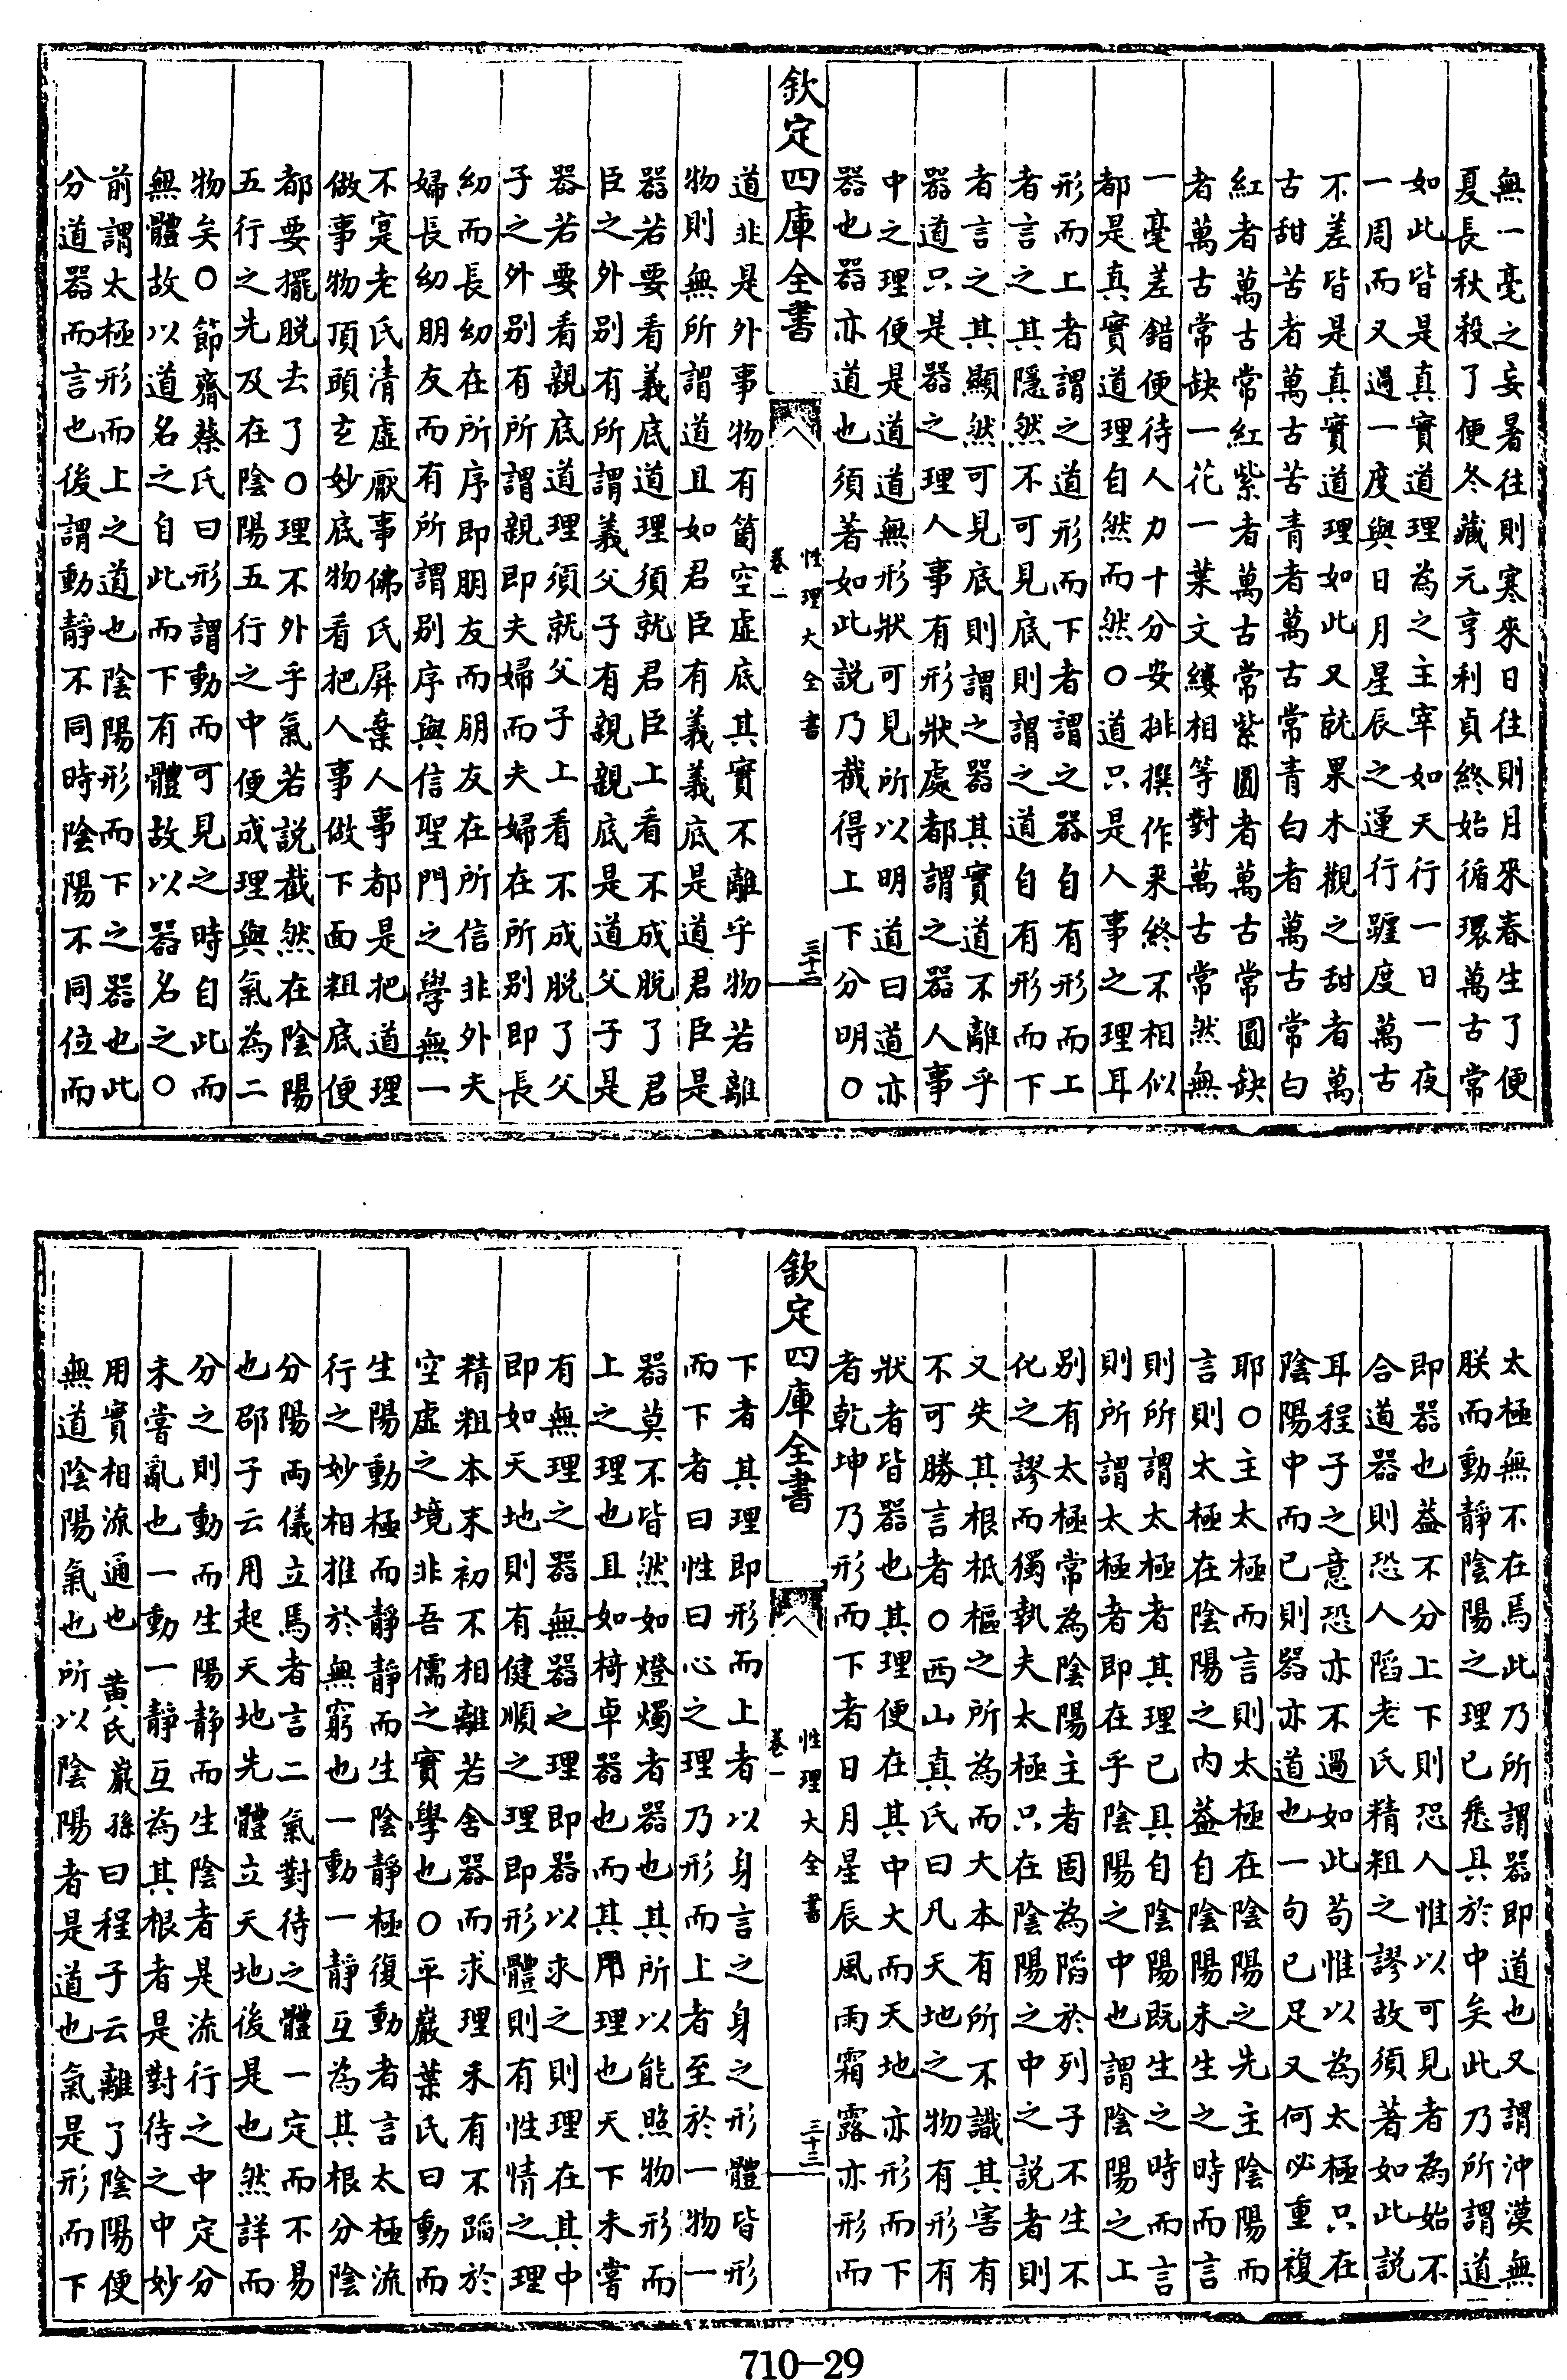 無一毫之妄暑往則寒來日往則月來春生了便
夏長秋殺了便冬藏元亨利貞終始循環萬古常
如此皆是真實道理為之主宰如天行一日一夜
一周而又過一度與日月星辰之運行躔度萬古
不差皆是真實道理如此又就果木觀之甜者萬
古甜苦者萬古苦青者萬古常青白者萬古常白
紅者萬古常紅紫者萬古常紫圓者萬古常圓缺
者萬古常缺一花一葉文縷相等對萬古常然無
一毫差錯便待人力十分安排撰作来終不相似
都是真實道理自然而然○道只是人事之理耳
形而上者謂之道形而下者謂之器自有形而上
者言之其隱然不可見底則謂之道自有形而下
者言之其顯然可見底則謂之器其實道不離乎
器道只是器之理人事有形狀處都謂之器人事
中之理便是道道無形狀可見所以明道曰道亦
器也器亦道也須著如此説乃截得上下分明○
欽定四庫全書
性理大全書
卷一
三十二
道非是外事物有箇空虛底其實不離乎物若離
物則無所謂道且如君臣有義義底是道君臣是
器若要看義底道理須就君臣上看不成脱了君
臣之外别有所謂義父子有親親底是道父子是
器若要看親底道理須就父子上看不成脱了父
子之外别有所謂親即夫婦而夫婦在所别即長
幼而長幼在所序即朋友而朋友在所信非外夫
婦長幼朋友而有所謂别序與信聖門之學無一
不寔老氏清虛厭事佛氏屏棄人事都是把道理
做事物頂頭玄妙底物看把人事做下面粗底便
都要擺脱去了○理不外乎氣若説截然在陰陽
五行之先及在陰陽五行之中便成理與氣為二
物矣○節齋蔡氏曰形謂動而可見之時自此而
無體故以道名之自此而下有體故以器名之○
前謂太極形而上之道也陰陽形而下之器也此
分道器而言也後謂動靜不同時陰陽不同位而
太極無不在焉此乃所謂器即道也又謂沖漠無
朕而動靜陰陽之理已悉具於中矣此乃所謂道
即器也葢不分上下則恐人惟以可見者為始不
合道器則恐人䧟老氏精粗之謬故須著如此説
耳程子之意恐亦不過如此苟惟以為太極只在
陰陽中而已則器亦道也一句已足又何必重複
耶○主太極而言則太極在陰陽之先主陰陽而
言則太極在陰陽之内葢自陰陽未生之時而言
則所謂太極者其理已具自陰陽既生之時而言
則所謂太極者即在乎陰陽之中也謂陰陽之上
别有太極常為陰陽主者固為䧟於列子不生不
化之謬而獨執夫太極只在陰陽之中之説者則
又失其根柢樞之所為而大本有所不識其害有
不可勝言者○西山真氏曰凡天地之物有形有
狀者皆器也其理便在其中大而天地亦形而下
者乾坤乃形而下者日月星辰風雨霜露亦形而
欽定四庫全書
性理大全書
卷一
三十三
下者其理即形而上者以身言之身之形體皆形
而下者曰性曰心之理乃形而上者至於一物一
器莫不皆然如燈燭者器也其所以能照物形而
上之理也且如椅卓器也而其用理也天下未嘗
有無理之器無器之理即器以求之則理在其中
即如天地則有健順之理即形體則有性情之理
精粗本末初不相離若舍器而求理未有不蹈於
空虛之境非吾儒之實學也○平巖葉氏曰動而
生陽動極而靜靜而生陰靜極復動者言太極流
行之妙相推於無窮也一動一靜互為其根分陰
分陽兩儀立焉者言二氣對待之體一定而不易
也邵子云用起天地先體立天地後是也然詳而
分之則動而生陽靜而生陰者是流行之中定分
未嘗亂也一動一靜互為其根者是對待之中妙
用實相流通也 黄氏巖孫曰程子云離了陰陽便
無道陰陽氣也所以陰陽者是道也氣是形而下
710-29